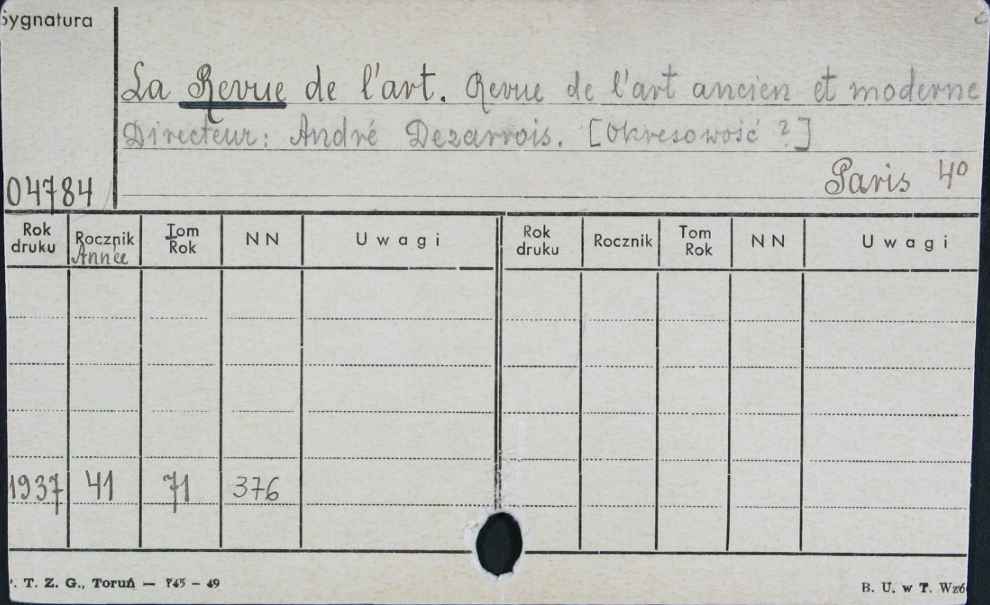 Sygnatura
La Revue de l'art. Revue de l'art ancien et moderne
Directeur: André Dezarrois. [Okresowość ?]
Paris 4º
04784
Rok druku Rocznik Année Tom Rok NN Uwagi Rok druku Rocznik Tom Rok NN Uwagi
1937 41 71 376
. T. Z. G., Toruń — 745 - 49
B. U. w T. Wzó